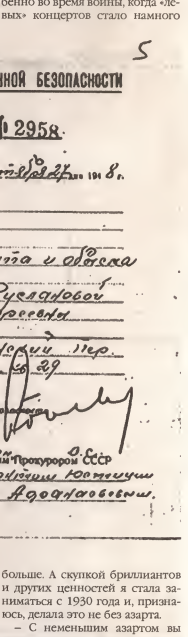 бенно во время войны, когда «ле-
вых» концертов стало намного
5
НОЙ БЕЗОПАСНОСТИ
№ 2958.
27 дня 1948 г.
та и обыска
Руслановой
реевны
пер.
29
Прокурором СССР
Юстиции
Афанасьевым.
больше. А скупкой бриллиантов
и других ценностей я стала за-
ниматься с 1930 года и, призна-
юсь, делала это не без азарта.
– С неменьшим азартом вы